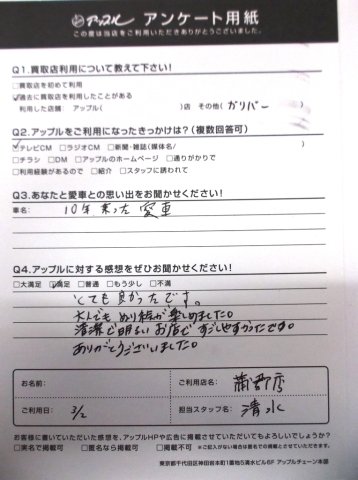 アップル アンケート用紙
この度は当店をご利用いただきありがとうございました。
Q1.買取店利用について教えて下さい!
□買取店を初めて利用
☑過去に買取店を利用したことがある
利用した店舗: アップル( )店 その他(ガリバー )
Q2.アップルをご利用になったきっかけは?(複数回答可)
☑テレビCM □ラジオCM □新聞・雑誌(媒体名/ )
□チラシ □DM □アップルのホームページ □通りがかりで
□利用経験があるので □紹介 □スタッフに誘われて
Q3.あなたと愛車との思い出をお聞かせください!
車名: 10年乗った愛車
Q4.アップルに対する感想をぜひお聞かせください!
□大満足 ☑満足 □普通 □もう少し □不満
とても良かったです。
大人でもぬり絵が楽しめました。
清潔で明るいお店ですごしやすかったです。
ありがとうございました。
お名前:
ご利用店名: 蒲郡店
ご利用日: 3/2
担当スタッフ名: 清水
お客様に書いていただいた感想を、アップルHPや広告に掲載させていただいてもよろしいでしょうか?
□実名で掲載可 □匿名なら掲載可 □掲載不可 ※ご記入がない場合は匿名での掲載とさせていただきます。
東京都千代田区神田岩本町1番地5清水ビル6F アップルチェーン本部